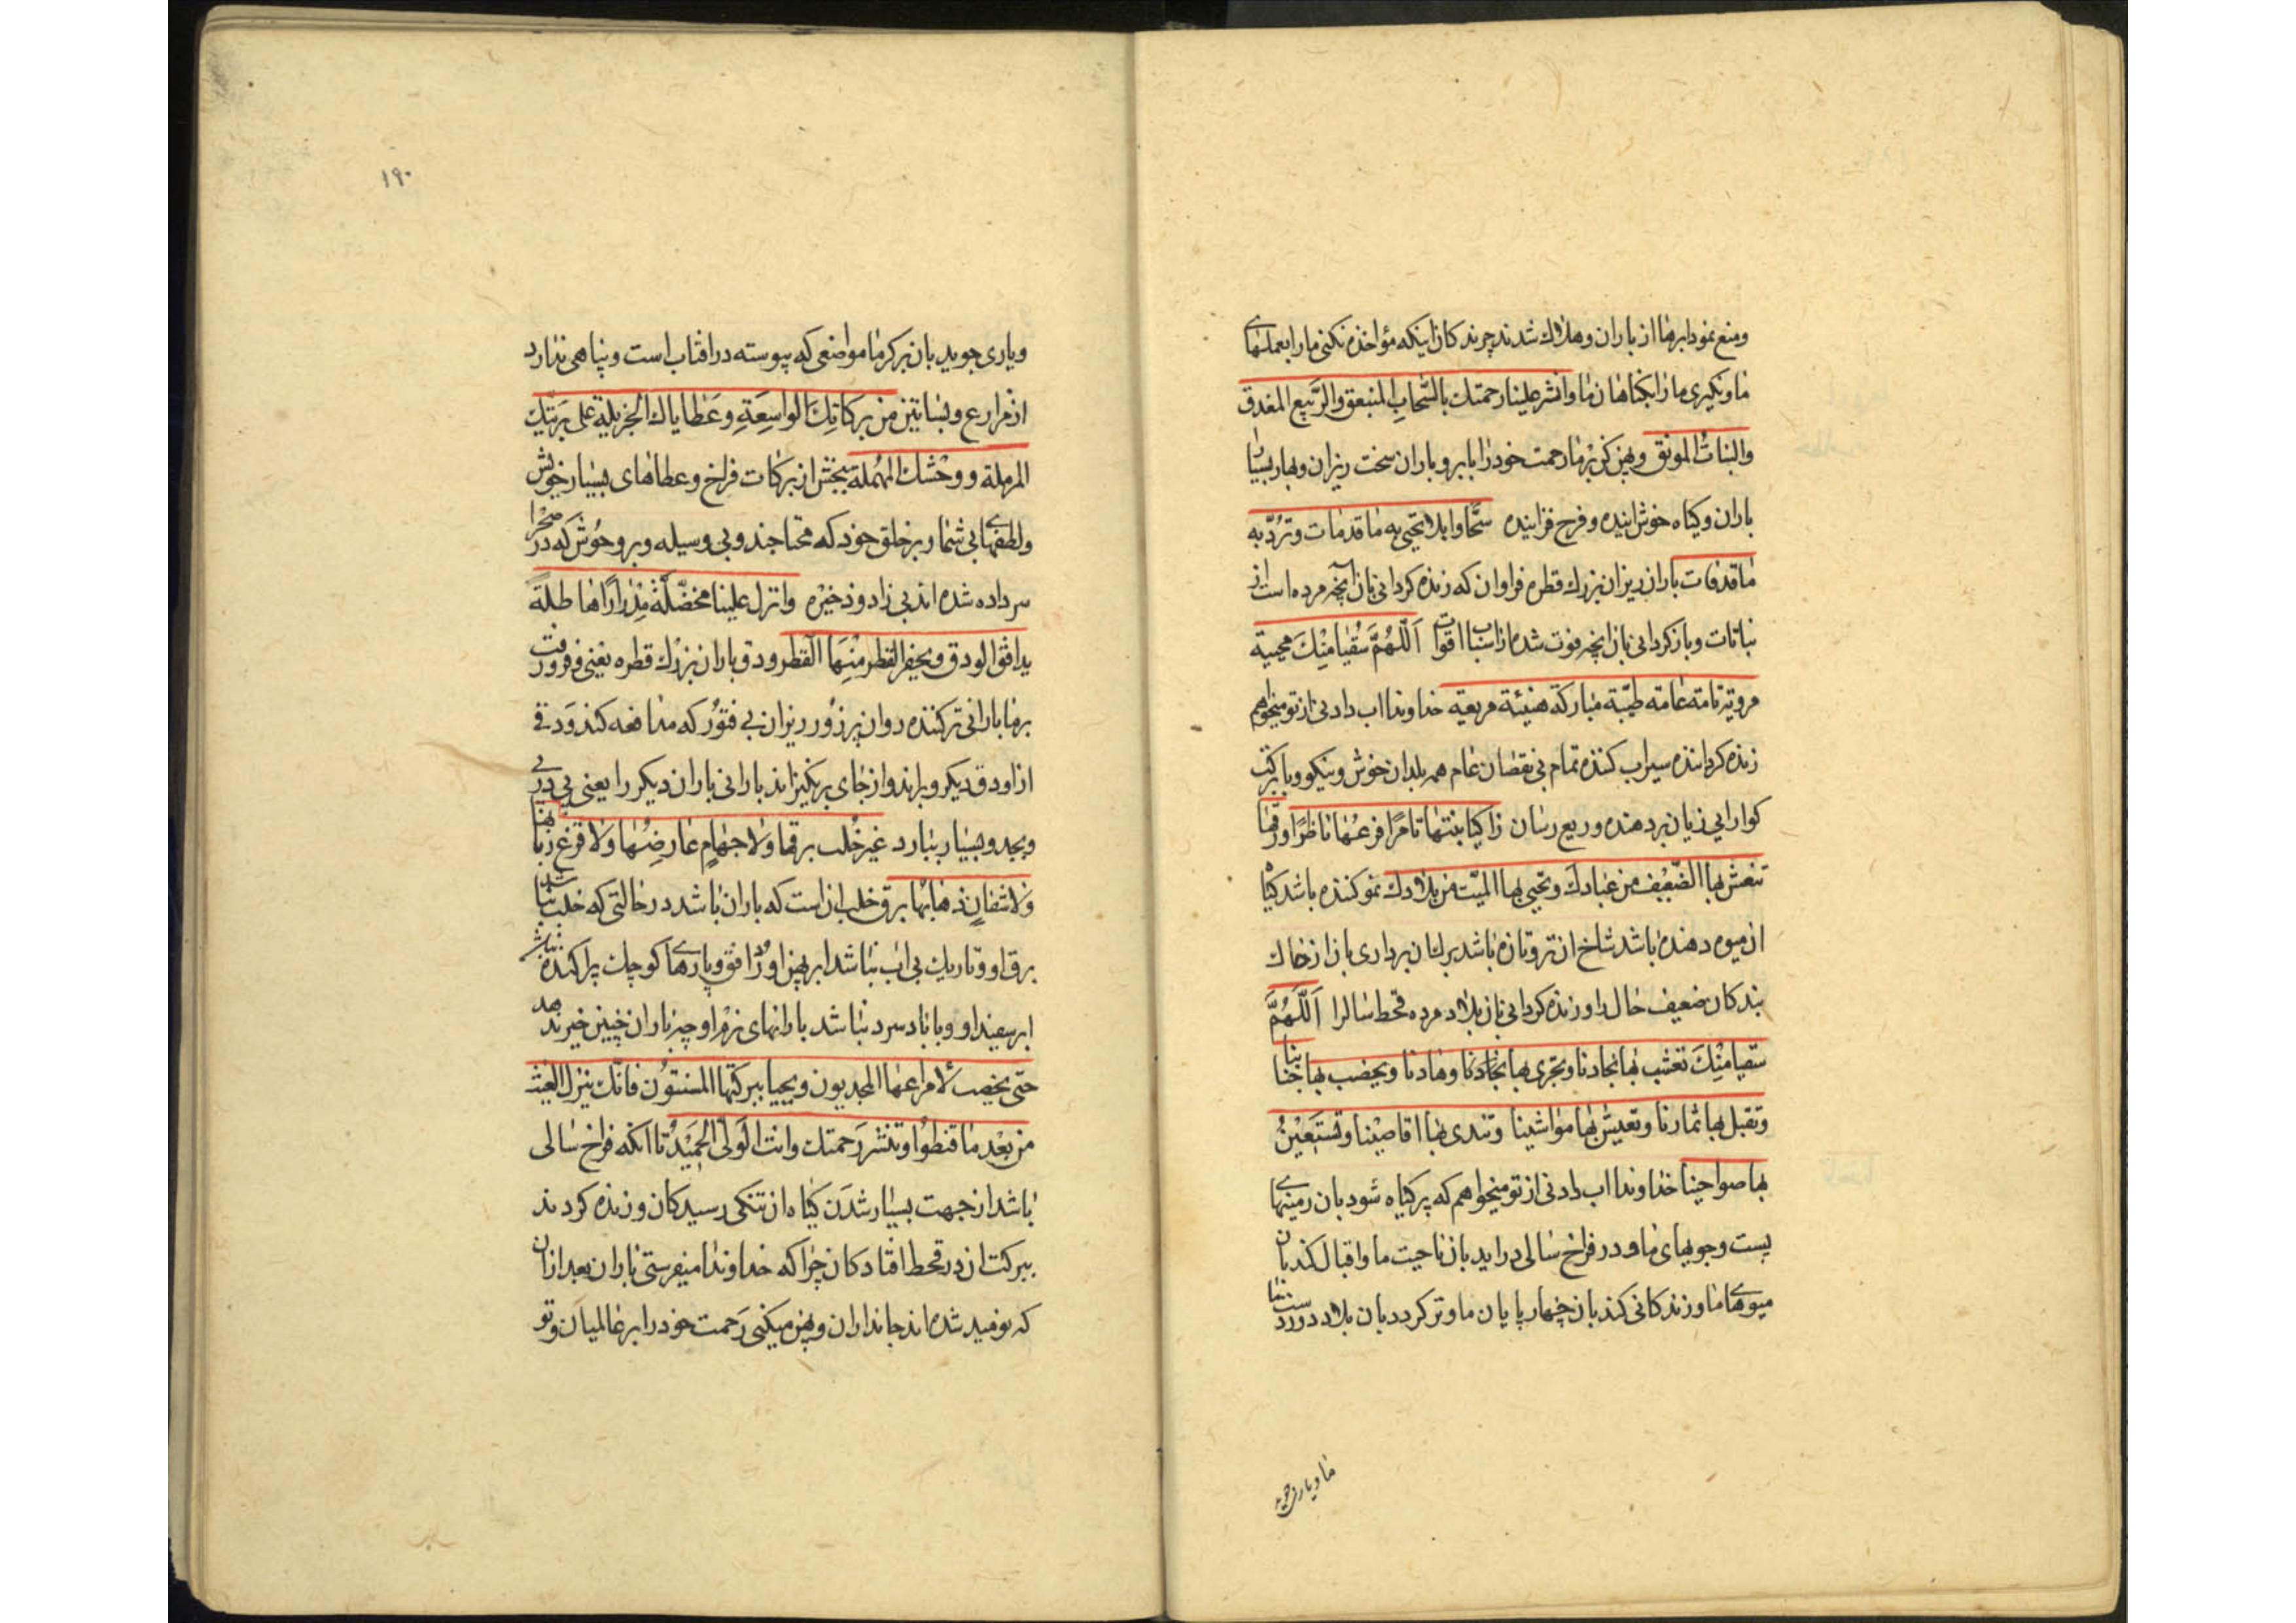 ومنع نمود ابرها از باران و هلاك شدند چرندكان اینكه مؤاخذه نكنی ما را بعملهای
ما و نكیری ما را بكناهان ما وانشر علینا رحمتك بالسّحاب المنبعق والرّبیع المغدق
والنبات المونق و پهن كن بر ما رحمت خود را بابر و باران سخت ریزان و بهار بسیار
باران و كیاه خوش اینده و فرح فزاینده سحّا وابلا تحیی به ما قدمات و تردّ به
ما قدفات باران ریزان بزرك قطره فراوان كه زنده كردانی بان آنچه مرده است از
نباتات و باز كردانی بان انچه فوت شده از اسباب اقوات اَللّهُمَّ سُقیا مِنْكَ محییة
مرویة تامه عامه طیّبة مباركة هنیئة مریعیة خداوندا اب دادنی از تو میخواهم
زنده كرداننده سیراب كننده تمام بی نقصان عام همه بلدان خوش و نیكو و با بركت
كوارا بی زیان بر دهنده و ریع رسان زاكیا نبتها ثامرًا فرعُها ناظرًا ورقها
تنعش بها الضّعیف من عبادك و تحیی بها المیّت من بلادك نمو كننده باشد كیاه
ان میوه دهنده باشد شاخ ان تر و تازه باشد برك ان برداری بان از خاك
بندكان ضعیف حال را و زنده كردانی بان بلاد مرده قحط سال را اَللّهُمَّ
سقیا مِنْكَ تعشب بها نجادنا و تجری بها وهادنا و یخضب بها جنابنا
و تقبل بها ثمارنا و تعیش بها مواشینا و تندی بها اقاصینا و تَسْتَعِیْنُ
بها ضواحینا خداوندا اب دادنی از تو میخواهم كه پر كیاه شود بان زمینهای
پست و جویهای ما و در فراخ سالی دراید بان ناحیت ما و اقبال كند بان
میوهای ما و زندكانی كند بان چهار پایان ما و تر كردد بان بلاد دوردست
ما و یاری جوید
۱۹۰
و یاری جوید بان بر كرما مواضعی كه پیوسته در افتاب است و پناهی ندارد
از مزارع و بساتین من بركاتِكَ الواسِعَةِ و عَطایاك الجزیلة علی بریّتك
المرملة و وحْشك المُهملة بخش از بركات فراخ و عطاهای بسیار خویش
و لطفهای بی شمار بر خلق خود كه محتاجند و بی وسیله و بر وحوش كه در صحرا
سر داده شده اند بی زاد و ذخیره وانزل علینا مخضلّة مِدْرارًا هاطلةً
یدافع الودق و یحفز القطر مِنْهَا القطر ودق باران بزرك قطره یعنی فرو فرست
بر ما بارانی تر كننده روان پر زور ریزان بی فتور كه مدافعه كند ودقی
از او ودق دیكر و براند و از جای برنكیزاند بارانی باران دیكر را یعنی پی در پی
و بجد و بسیار ببارد غیر خُلب برقها ولا جهامٍ عارضُها ولا قزع ربابها
ولا شفان ذهابها برق خلب ان است كه باران نباشد در حالتی كه خلب نباشد
برق او و تاریك بی اب نباشد ابر پهن او در افق و پارهای كوچك پراكنده نباشد
ابر سفید او و با باد سرد نباشد بارانهای نرم او چه باران چنین خیر ندهد
حتی یخصب لأمراعها المجدبون و یحیا ببركتها المسنتون فانك ینزل الغیث
من بَعْدِ ما قنطوا و تنشر رَحمتك وانت الوَلیّ الحَمِیْدُ تا آنكه فراخ سالی
باشد از جهت بسیار شدن كیاه ان تنكی رسیدكان و زنده كردند
ببركت ان در قحط افتادكان چرا كه خداوندا میفرستی باران بعد از ان
كه نومید شده اند جانداران و پهن میكنی رَحمت خود را بر عالمیان و تو